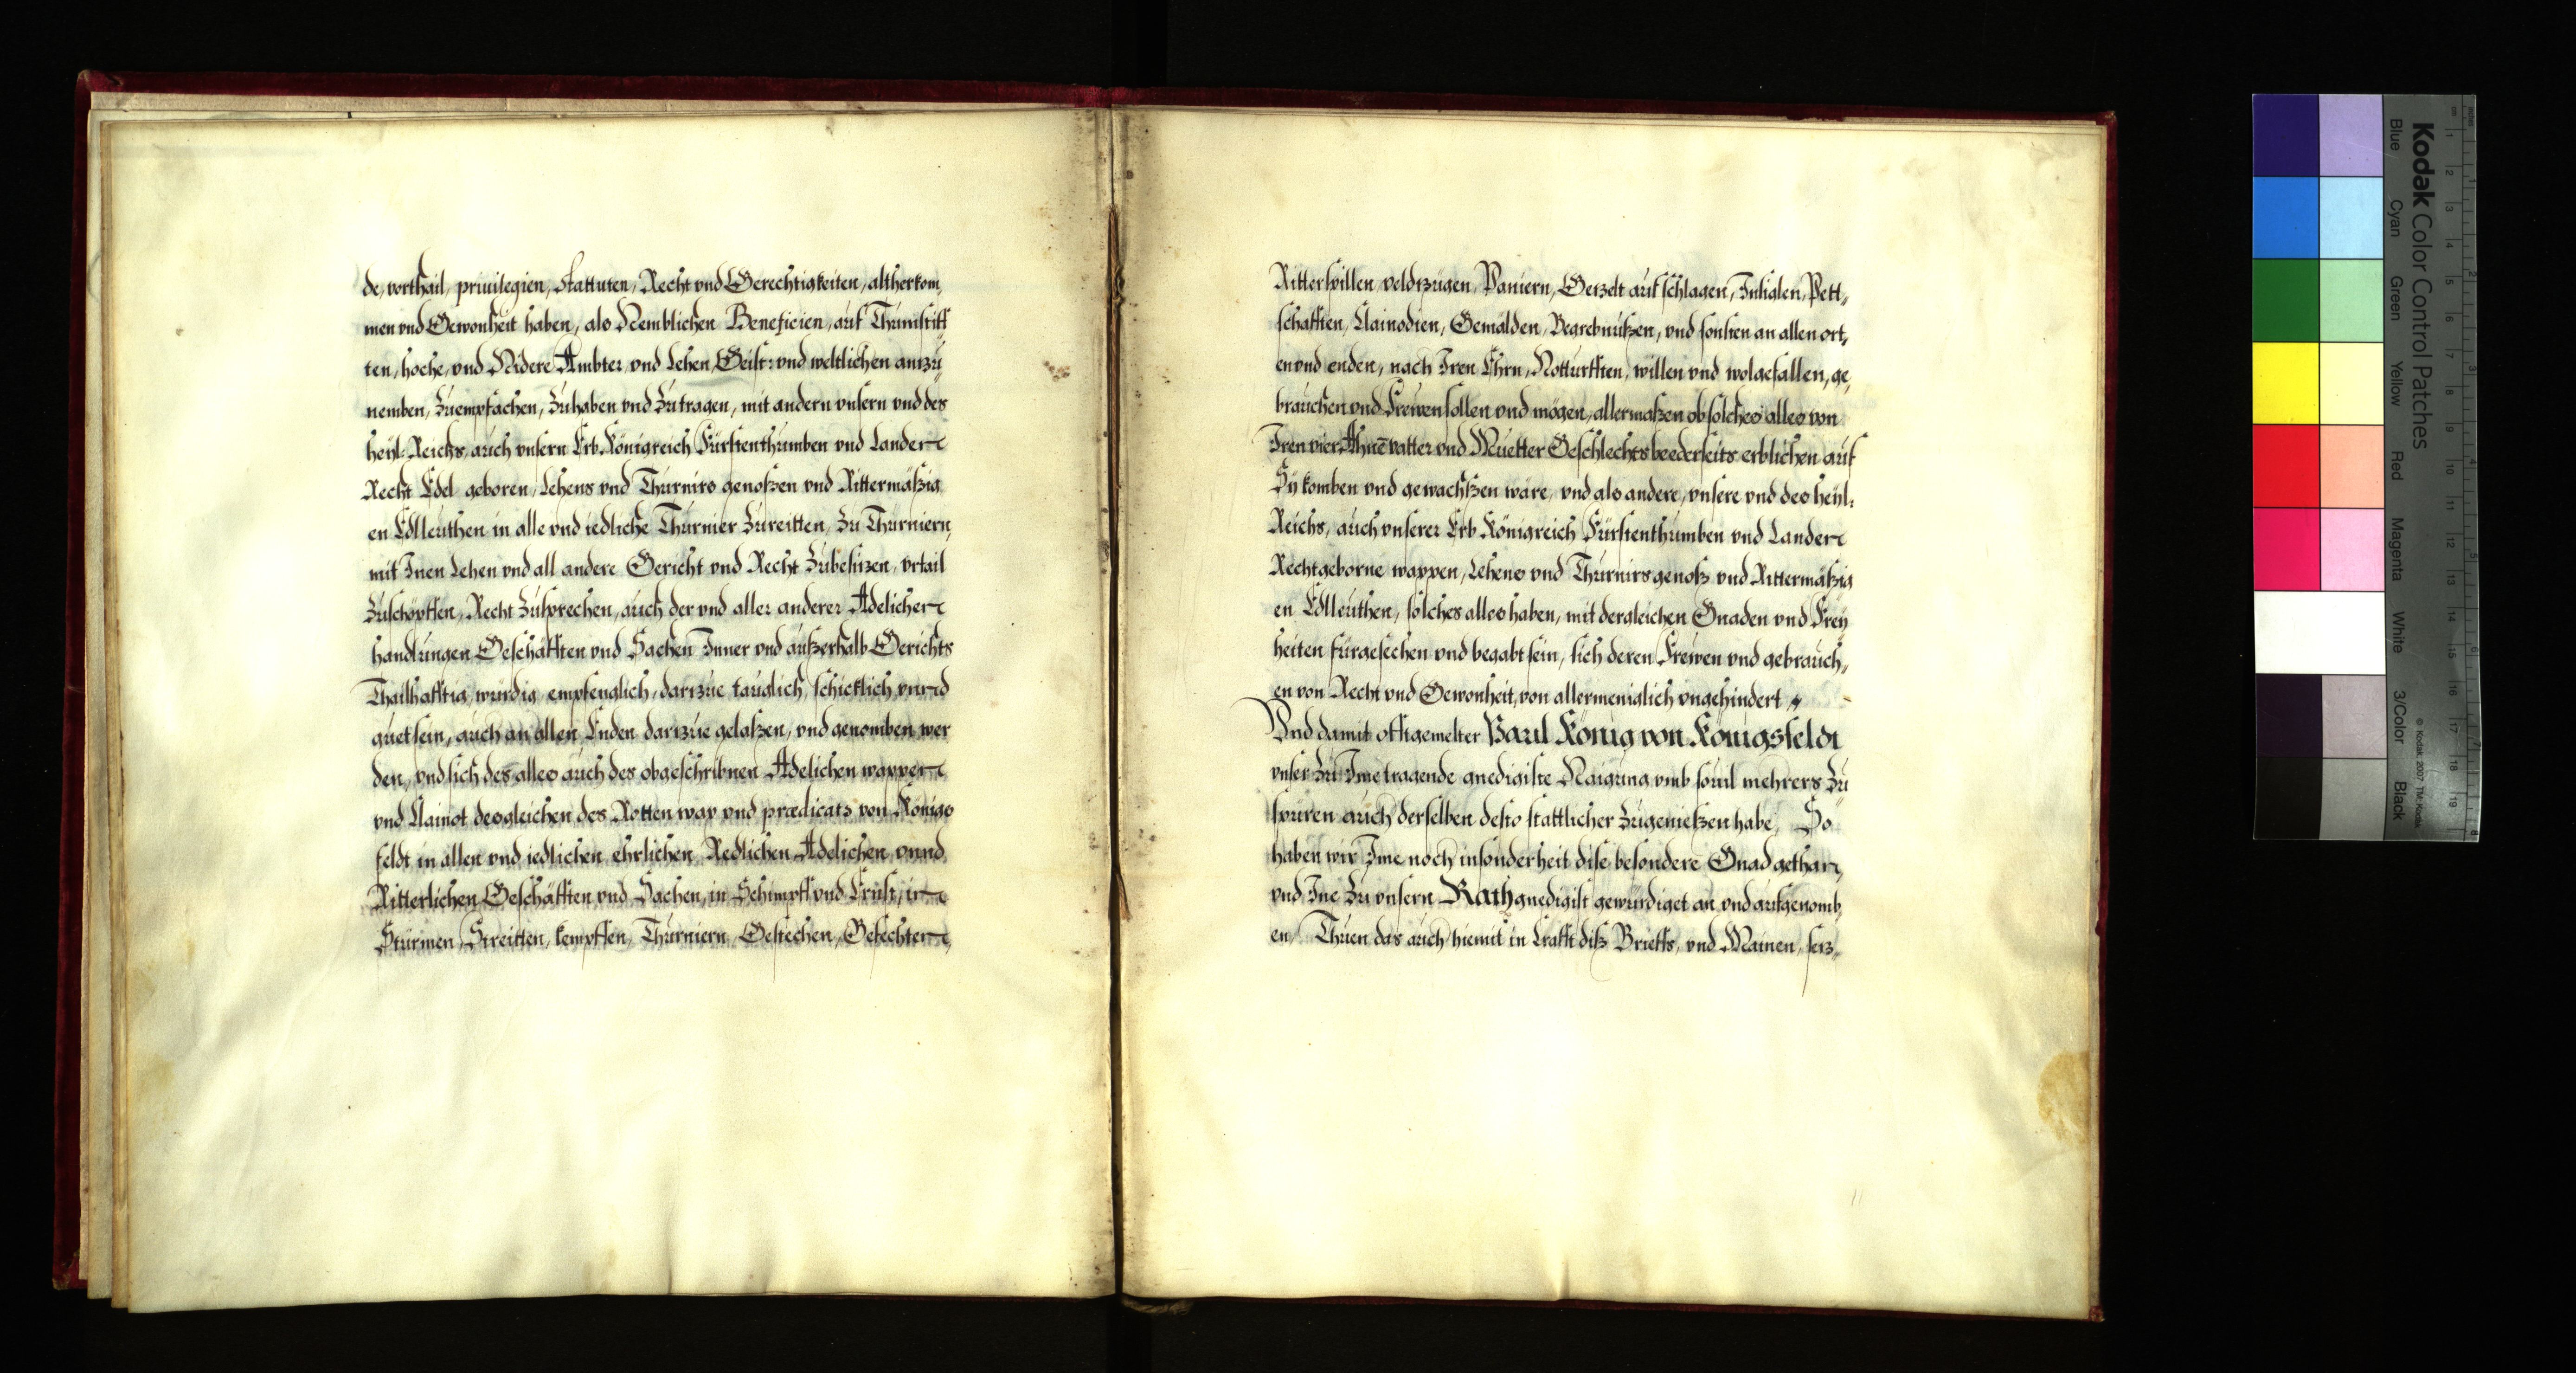 de, vorthail, priuilegien, Stattuten, Recht vnd Gerechtigkeiten, altherkom,
men vnd Gewonheit haben, als Nemblichen Beneficien, auf Thumstiff
ten, hoche, vnd Nidere Ämbter, vnd Lehen, Geist: vnd weltlichen anzu,,
nemben, Zuempfachen, Zuhaben vnd Zutragen, mit andern vnsern vnd des
heyl: Reichs, auch vnsern Erb Königreich Fürstenthumben vnd Lander
Recht Edel geboren, Lehens vnd Thurnirs genoßen vnd Rittermäßig
en Edlleuthen in alle vnd iedliche Thurnier Zureitten, Zu Thurniern,
mit Inen Lehen vnd all andere Gericht vnd Recht Zubesizen, vrtail
Zuschöpffen, Recht Zusprechen, auch der vnd aller anderer Adelicher
handlungen Geschäfften vnd Sachen Inner vnd außerhalb Gerichts
Thailhafftig, würdig, empfenglich, darzue tauglich, schicklich vnnd
guet sein, auch an allen Enden darzue gelaßen, vnd genomben wer
den, vnd sich des alles auch des obgeschribnen Adelichen wappen
vnd Clainot desgleichen des Rotten wax vnd prædicats von Königs
feldt in allen vnd iedlichen ehrlichen, Redlichen Adelichen vnnd
Ritterlichen Geschäfften vnd Sachen, in Schimpff vnd Ernst, in
Stürmen, Streitten, kempffen, Thurniern, Gestechen, Gefechten,
Ritterspillen, veldtzügen, Paniern, Gezelt aufschlagen, Insiglen, Pett,,
schafften, Clainodien, Gemälden, Begrebnußen, vnd sonsten an allen ort,
en vnd enden, nach Iren Ehrn, Notturfften, willen vnd wolgefallen, ge,
brauchen vnd Freuen sollen vnd mögen, allermaßen ob solches alles von
Iren vier Ahnē vatter vnd Muetter Geschlechts beederseits erblichen auf
Sy komben vnd gewachßen wäre, vnd als andere, vnsere vnd des heyl:
Reichs, auch vnserer Erb Königreich Fürstenthumben vnd Lander
Rechtgeborne wappen, Lehens vnd Thurnirs genoß vnd Rittermäßig
en Edlleuthen, solches alles haben, mit dergleichen Gnaden vnd Frey
heiten fürgesechen vnd begabt sein, sich deren Frewen vnd gebrauch,,
en von Recht vnd Gewonheit, von allermeniglich vngehindert
Vnd damit offtgemelter Paul König von Königsfeldt
vnser Zu Ime tragende gnedigiste Naigung vmb souil mehrers Zu
spüren auch derselben desto stattlicher Zugenießen habe, So
haben wir Ime noch insonderheit dise besondere Gnad gethan,
vnd Ine Zu vnsern Rath gnedigist gewürdiget an vnd aufgenomb,
en, Thuen das auch hiemit in Crafft diß Brieffs, vnd Mainen, sez,,
Kodak Color Control Patches
Blue Cyan Green Yellow Red Magenta White 3/Color Black
© Kodak, 2007 TM: Kodak